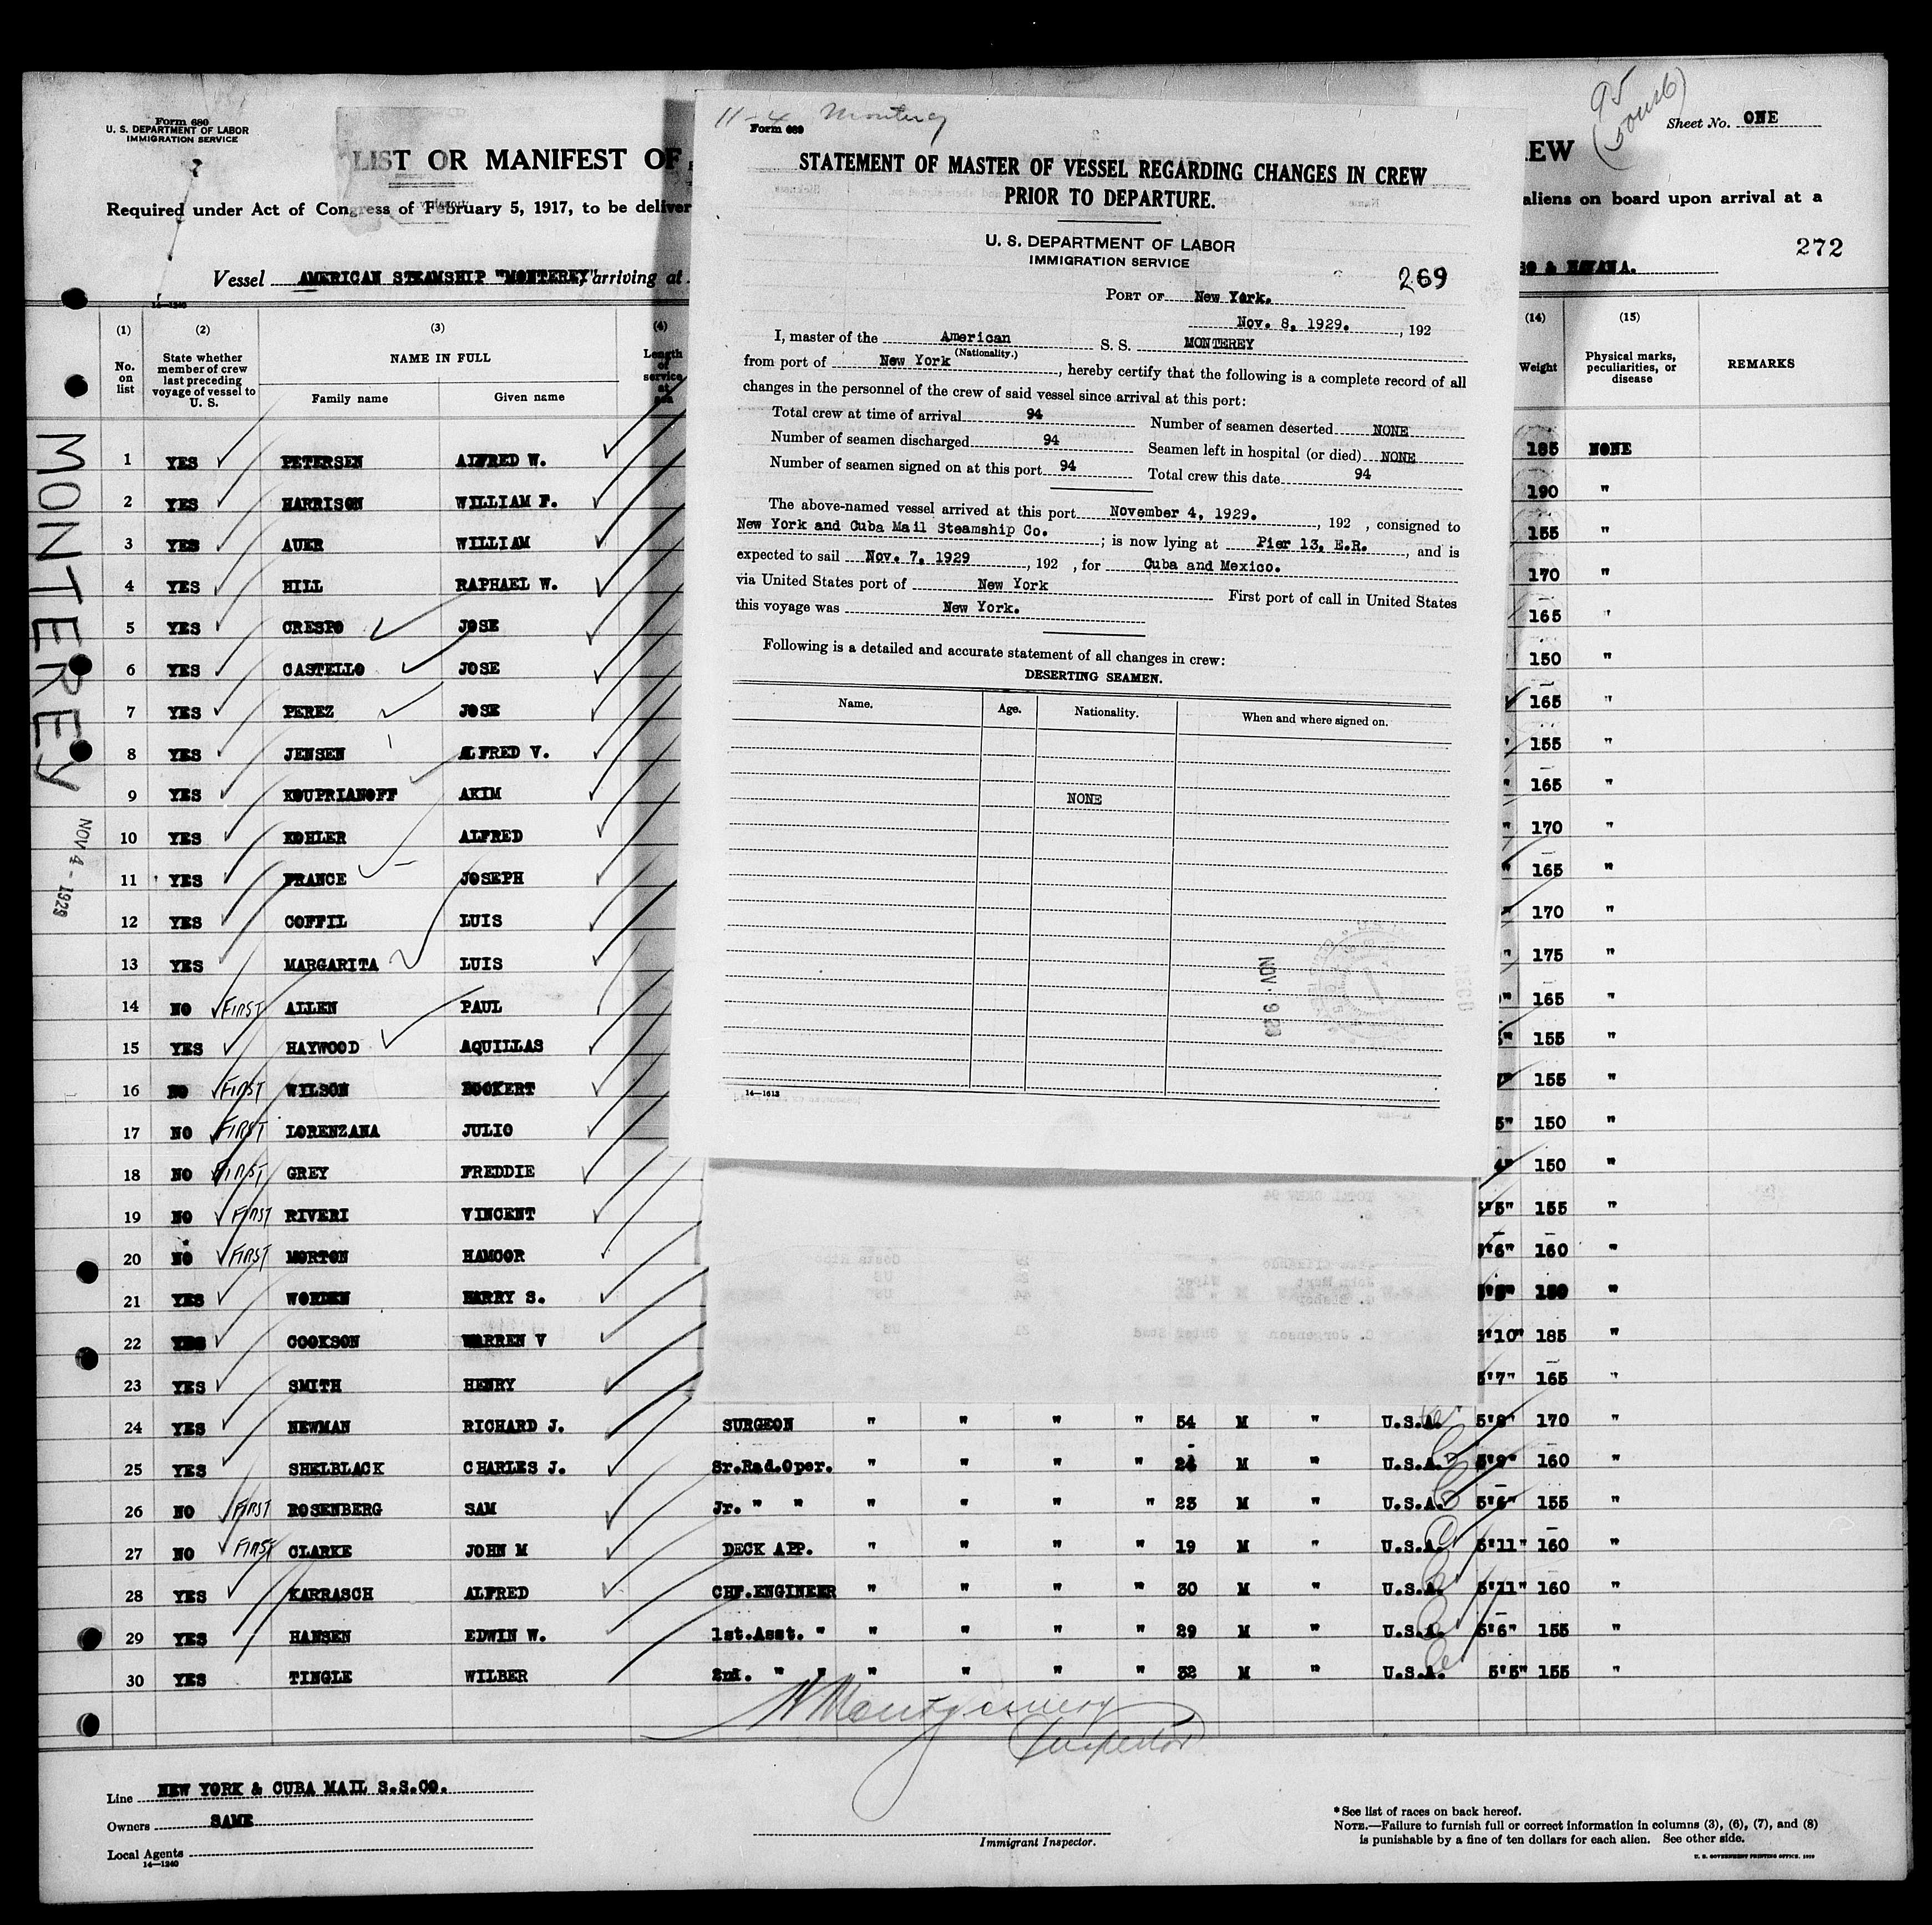 Form 680
U. S. DEPARTMENT OF LABOR
IMMIGRATION SERVICE
LIST OR MANIFEST OF
Required under Act of Congress of February 5, 1917, to be deliver
Vessel AMERICAN STEAMSHIP "MONTEREY" arriving at
14—1240
EW
95
Sheet No. ONE
aliens on board upon arrival at a
272
& HAVANA.
11-4 Monterey
Form 689
STATEMENT OF MASTER OF VESSEL REGARDING CHANGES IN CREW
PRIOR TO DEPARTURE.
U. S. DEPARTMENT OF LABOR
IMMIGRATION SERVICE
269
PORT OF New York.
Nov. 8, 1929. , 192
I, master of the American S. S. MONTEREY
(Nationality.)
from port of New York , hereby certify that the following is a complete record of all
changes in the personnel of the crew of said vessel since arrival at this port:
Total crew at time of arrival 94 Number of seamen deserted NONE
Number of seamen discharged 94 Seamen left in hospital (or died) NONE
Number of seamen signed on at this port 94 Total crew this date 94
The above-named vessel arrived at this port November 4, 1929. , 192 , consigned to
New York and Cuba Mail Steamship Co. ; is now lying at Pier 13, E.R. , and is
expected to sail Nov. 7, 1929 , 192 , for Cuba and Mexico.
via United States port of New York First port of call in United States
this voyage was New York.
Following is a detailed and accurate statement of all changes in crew:
DESERTING SEAMEN.
Name. Age. Nationality. When and where signed on.
NONE
NOV. 9
14—1613
MONTEREY
NOV 4 - 1929
(1) (2) (3) (4) (14) (15)
No. on list State whether member of crew last preceding voyage of vessel to U. S. NAME IN FULL Length of service at sea Weight Physical marks, peculiarities, or disease REMARKS
Family name Given name
1 YES PETERSEN ALFRED W. 185 NONE
2 YES HARRISON WILLIAM F. 190 "
3 YES AUER WILLIAM 155 "
4 YES HILL RAPHAEL W. 170 "
5 YES CRESPO JOSE 165 "
6 YES CASTELLO JOSE 150 "
7 YES PEREZ JOSE 165 "
8 YES JENSEN ALFRED V. 155 "
9 YES KOUPRIANOFF AKIM 165 "
10 YES KOHLER ALFRED 170 "
11 YES FRANCE JOSEPH 165 "
12 YES COFFIL LUIS 170 "
13 YES MARGARITA LUIS 175 "
14 NO FIRST ALLEN PAUL 165 "
15 YES HAYWOOD AQUILLAS 155 "
16 NO FIRST WILSON ROCKERT 155 "
17 NO FIRST LORENZANA JULIO 5" 150 "
18 NO FIRST GREY FREDDIE 4" 150 "
19 NO FIRST RIVERI VINCENT 5'5" 155 "
20 NO FIRST MORTON HAMCOR 5'6" 160 "
21 YES WORDEN HARRY S. "
22 YES COOKSON WARREN V 5'10" 185 "
23 YES SMITH HENRY 5'7" 165 "
24 YES NEWMAN RICHARD J. SURGEON " " " " 54 M " U.S.A. 5'8" 170 "
25 YES SHELBLACK CHARLES J. Sr.Rad.Oper. " " " " 24 M " U.S.A. 5'9" 160 "
26 NO FIRST ROSENBERG SAM Jr. " " " " " " 23 M " U.S.A. 5'6" 155 "
27 NO FIRST CLARKE JOHN M DECK APP. " " " " 19 M " U.S.A. 5'11" 160 "
28 YES KARRASCH ALFRED CHF.ENGINEER " " " " 30 M " U.S.A. 5'11" 160 "
29 YES HANSEN EDWIN W. 1st.Asst. " " " " " 29 M " U.S.A. 5'6" 155 "
30 YES TINGLE WILBER 2nd. " " " " " " 32 M " U.S.A. 5'5" 155 "
Montgomery
Inspector
Line NEW YORK & CUBA MAIL S.S.CO.
Owners SAME
Local Agents
14—1240
Immigrant Inspector.
*See list of races on back hereof.
NOTE.—Failure to furnish full or correct information in columns (3), (6), (7), and (8)
is punishable by a fine of ten dollars for each alien. See other side.
U. S. GOVERNMENT PRINTING OFFICE.